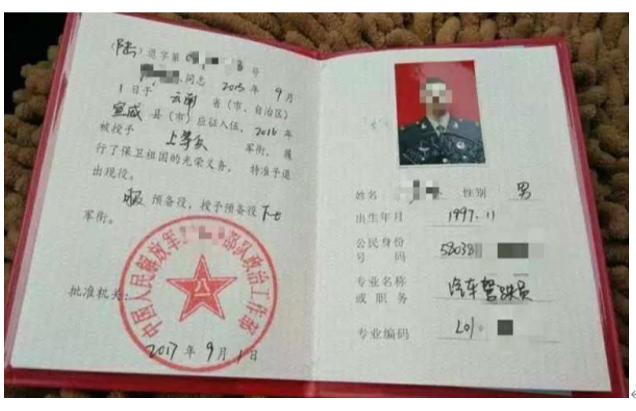 (陆)退字第 号
同志 2015 年 9 月
1 日于 云南 省(市、自治区)
宣威 县(市)应征入伍, 2016 年
被授予 上等兵 军衔, 履
行了保卫祖国的光荣义务, 特准予退
出现役。
服 预备役, 授予预备役 下士
军衔。
批准机关:
中国人民解放军 部队政治工作部
八一
2017 年 9 月 1 日
姓名 性别 男
出生年月 1997.11
公民身份
号 码 58038
专业名称
或 职 务 汽车驾驶员
专业编码 201